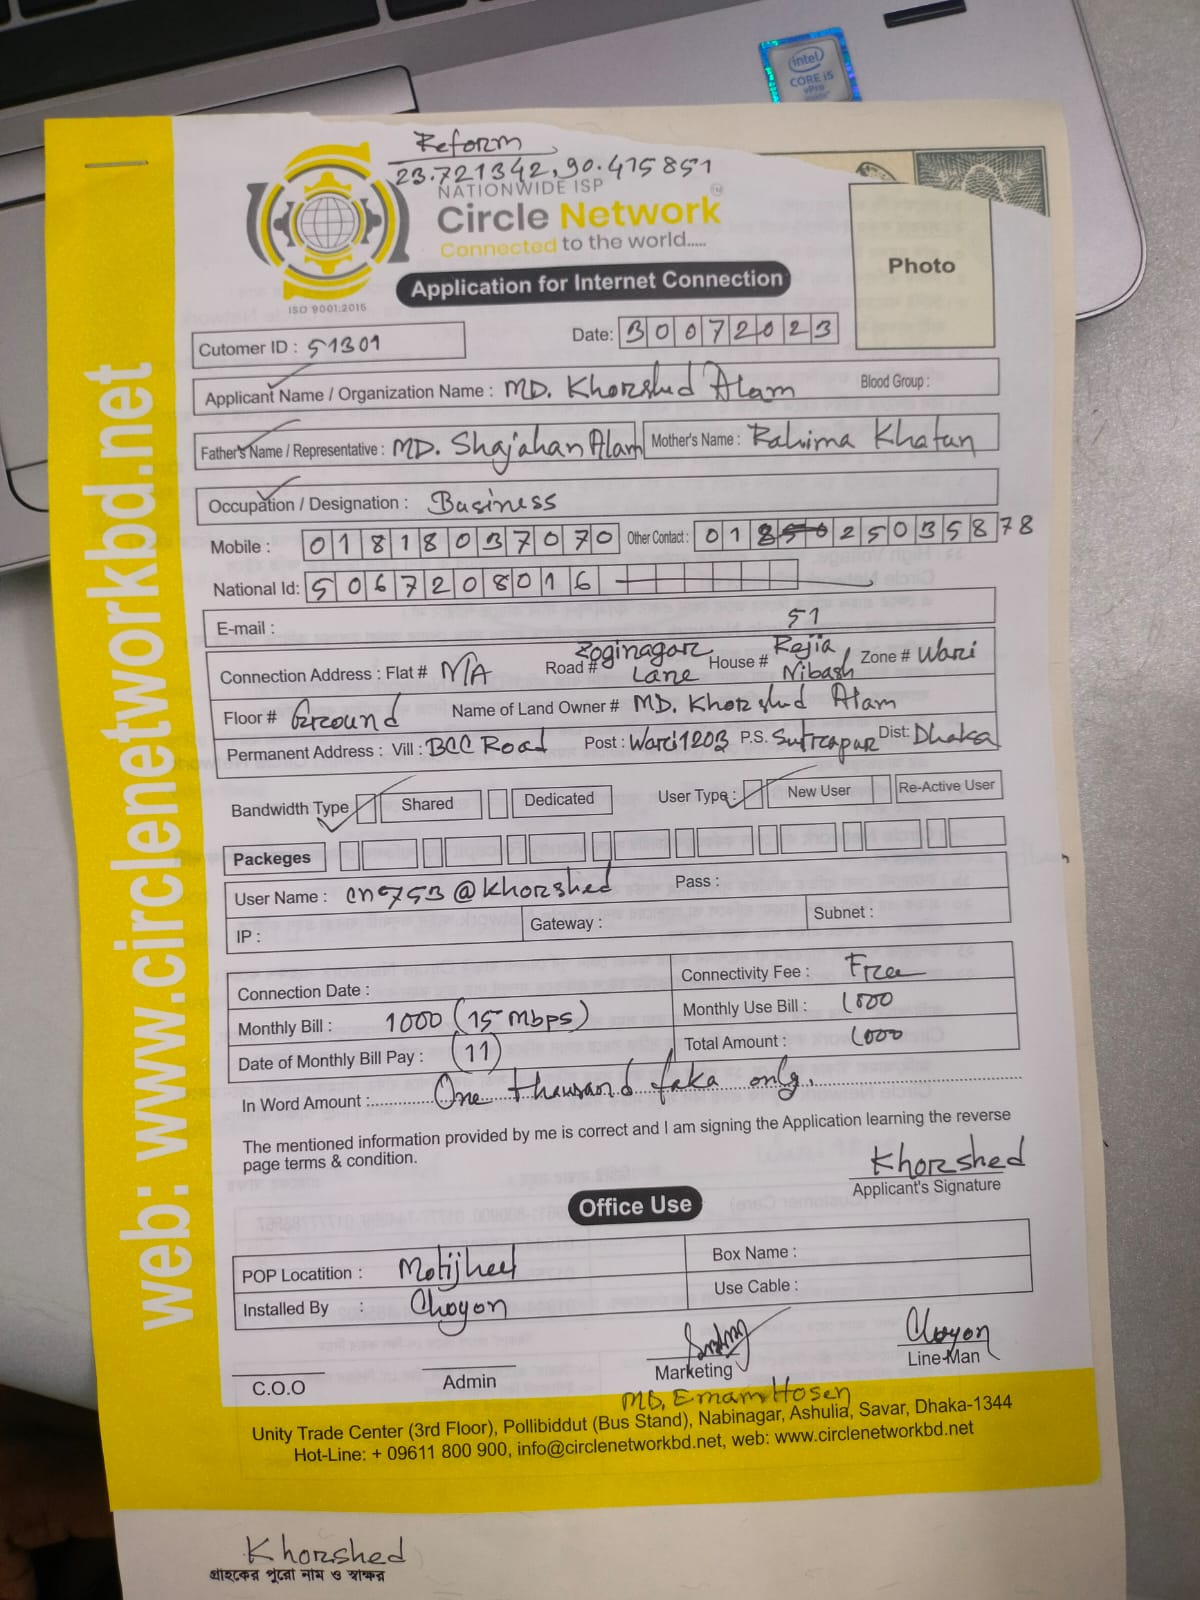 intel
CORE i5
vPro
Reform
23.721342,90.415851
NATIONWIDE ISP
Circle Network
Connected to the world.....
ISO 9001:2015
Application for Internet Connection
Photo
Cutomer ID : 51301
Date: 30072023
Applicant Name / Organization Name : MD. Khorshed Alam Blood Group :
Father's Name / Representative : MD. Shajahan Alam Mother's Name : Rahima Khatun
Occupation / Designation : Business
Mobile : 01818037070 Other Contact : 01 25035878
National Id: 5067208016
E-mail :
Connection Address : Flat # N/A Road # Zoginagar Lane House # 51 Rejia Nibash Zone # Wari
Floor # Ground Name of Land Owner # MD. Khorshed Alam
Permanent Address : Vill : BCC Road Post : Wari 1203 P.S. Sutrapur Dist: Dhaka
Bandwidth Type Shared Dedicated User Type : New User Re-Active User
Packeges
User Name : cn753@khorshed Pass :
IP : Gateway : Subnet :
Connection Date : Connectivity Fee : Free
Monthly Bill : 1000 (15 Mbps) Monthly Use Bill : 1000
Date of Monthly Bill Pay : (11) Total Amount : 1000
In Word Amount : One thousand taka only.
The mentioned information provided by me is correct and I am signing the Application learning the reverse
page terms & condition.
Khorshed
Applicant's Signature
Office Use
POP Locatition : Motijheel Box Name :
Installed By : Choyon Use Cable :
Choyon
C.O.O Admin Marketing Line-Man
MD. Emam Hosen
Unity Trade Center (3rd Floor), Pollibiddut (Bus Stand), Nabinagar, Ashulia, Savar, Dhaka-1344
Hot-Line: + 09611 800 900, info@circlenetworkbd.net, web: www.circlenetworkbd.net
web: www.circlenetworkbd.net
Khorshed
গ্রাহকের পুরো নাম ও স্বাক্ষর